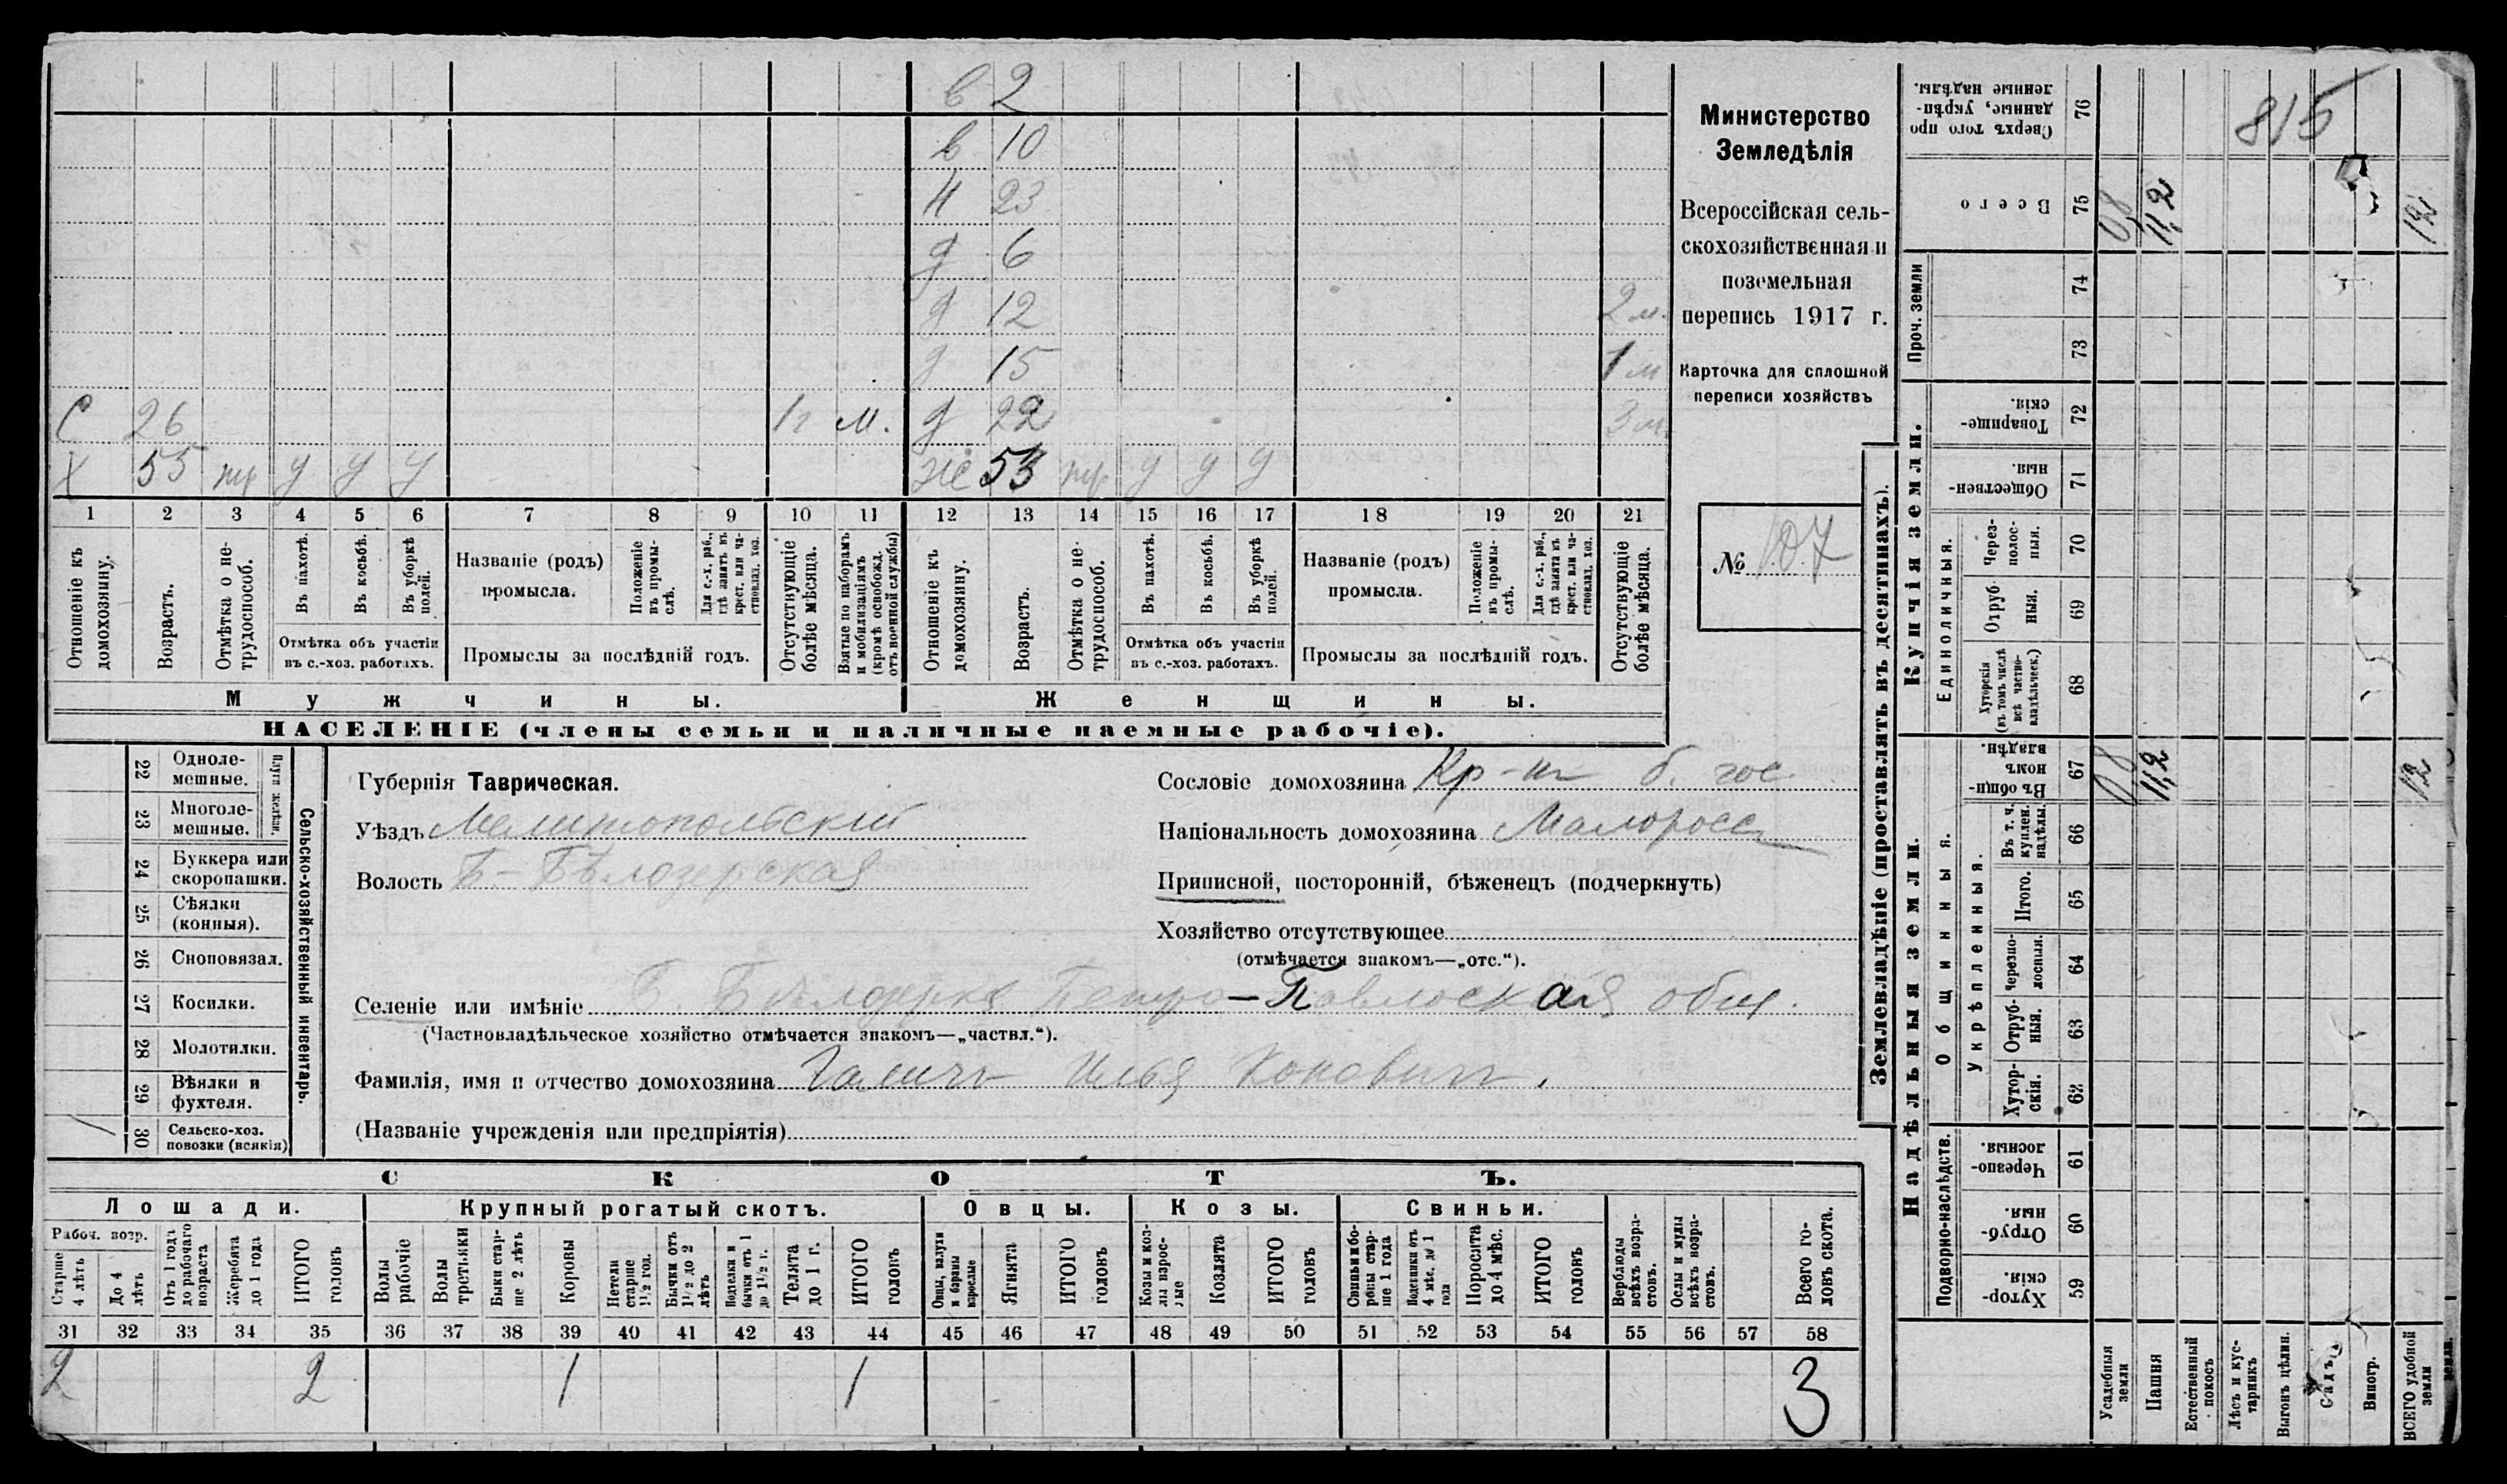 в 2
в 10
н 23
д 6
д 12 2 м.
д 15 1 м
С 26 1 г м. д 22 3 м.
Х 55 пр у у у же 53 пр у у у
1 2 3 4 5 6 7 8 9 10 11 12 13 14 15 16 17 18 19 20 21
Отношеніе къ домохозяину.
Возрастъ.
Отмѣтка о не-трудоспособ.
Въ пахотѣ.
Въ косьбѣ.
Въ уборкѣ полей.
Отмѣтка объ участіи
въ с.-хоз. работахъ.
Названіе (родъ)
промысла.
Положеніе въ промы-слѣ.
Для с.-х. раб., гдѣ занятъ въ крест. или ча-стновлад. хоз.
Промыслы за послѣдній годъ.
Отсутствующіе болѣе мѣсяца.
Взятые по наборамъ и мобилизаціямъ (кромѣ освобожд. отъ военной службы)
Отношеніе къ домохозяину.
Возрастъ.
Отмѣтка о не-трудоспособ.
Въ пахотѣ.
Въ косьбѣ.
Въ уборкѣ полей.
Отмѣтка объ участіи
въ с.-хоз. работахъ.
Названіе (родъ)
промысла.
Положеніе въ промы-слѣ.
Для с.-х. раб., гдѣ занята въ крест. или ча-стновлад. хоз.
Промыслы за послѣдній годъ.
Отсутствующіе болѣе мѣсяца.
Мужчины. Женщины.
НАСЕЛЕНІЕ (члены семьи и наличные наемные рабочіе).
Министерство
Земледѣлія
Всероссійская сель-
скохозяйственная и
поземельная
перепись 1917 г.
Карточка для сплошной
переписи хозяйствъ
№ 107
22 Одноле-мешные.
23 Многоле-мешные.
Плуги желѣзн.
24 Буккера или скоропашки.
25 Сѣялки (конныя).
26 Сноповязал.
27 Косилки.
28 Молотилки.
29 Вѣялки и фухтеля.
30 Сельско-хоз. повозки (всякія) /
Сельско-хозяйственный инвентарь.
Губернія Таврическая.
Уѣздъ Мелитопольскій
Волость Б-Бѣлозерская
Сословіе домохозяина Кр-нъ б. гос.
Національность домохозяина Малоросс
Приписной, посторонній, бѣженецъ (подчеркнуть)
Хозяйство отсутствующее
(отмѣчается знакомъ—„отс.“).
Селеніе или имѣніе Б. Бѣлозерка Петро-Павловская общ.
(Частновладѣльческое хозяйство отмѣчается знакомъ—„частвл.“).
Фамилія, имя и отчество домохозяина Галичъ Илья Кононовичъ.
(Названіе учрежденія или предпріятія)
СКОТЪ.
Лошади. Крупный рогатый скотъ. Овцы. Козы. Свиньи.
Рабоч. возр.
Старше 4 лѣтъ
До 4 лѣтъ
Отъ 1 года до рабочаго возраста
Жеребята до 1 года
ИТОГО головъ
Волы рабочіе
Волы третьяки
Быки стар-ше 2 лѣтъ
Коровы
Нетели старше 1½ год.
Бычки отъ 1½ до 2 лѣтъ
Подтелки и бычки отъ 1 до 1½ г.
Телята до 1 г.
ИТОГО головъ
Овцы, валухи и бараны взрослые
Ягнята
ИТОГО головъ
Козы и коз-лы взрос-лые
Козлята
ИТОГО головъ
Свиньи и бо-ровы стар-ше 1 года
Подсвинки отъ 4 мѣс. до 1 года
Поросята до 4 мѣс.
ИТОГО головъ
Верблюды всѣхъ возра-стовъ.
Ослы и мулы всѣхъ возра-стовъ.
Всего го-ловъ скота.
31 32 33 34 35 36 37 38 39 40 41 42 43 44 45 46 47 48 49 50 51 52 53 54 55 56 57 58
2 2 1 1 3
Землевладѣніе (проставлять въ десятинахъ).
Надѣльныя земли. Купчія земли. Проч. земли
Подворно-наслѣдств.
Общинныя.
Укрѣпленныя.
Единоличныя.
59 Хутор-скія.
60 Отруб-ныя.
61 Черезпо-лосныя.
62 Хутор-скія.
63 Отруб-ныя.
64 Черезпо-лосныя.
65 Итого.
66 Въ т. ч. куплен. надѣлы.
67 Въ общи-номъ владѣн. 08 11,2 12
68 Хуторскія (въ томъ числѣ всѣ частно-владѣльческ.)
69 Отруб-ныя.
70 Через-полос-ныя.
71 Обществен-ныя.
72 Товарище-скія.
73
74
75 Всего 08 11,2 12
76 Сверхъ того про-данные, укрѣп-ленные надѣлы.
815
Усадебныя земли
Пашня
Естественный покосъ
Лѣсъ и кус-тарникъ
Выгонъ цѣлин.
Садъ
Виногр.
ВСЕГО удобной земли
земли.